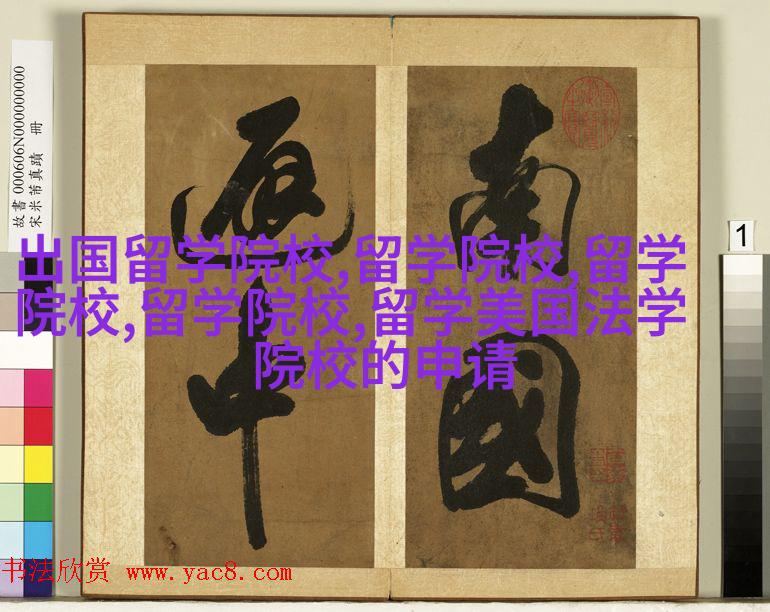 故書 000606N000000000
宋米芾真蹟 冊
南國
中
1
出国留学院校,留学院校,留学
院校,留学院校,留学美国法学
院校的申请
书法欣赏 www.yac8.com